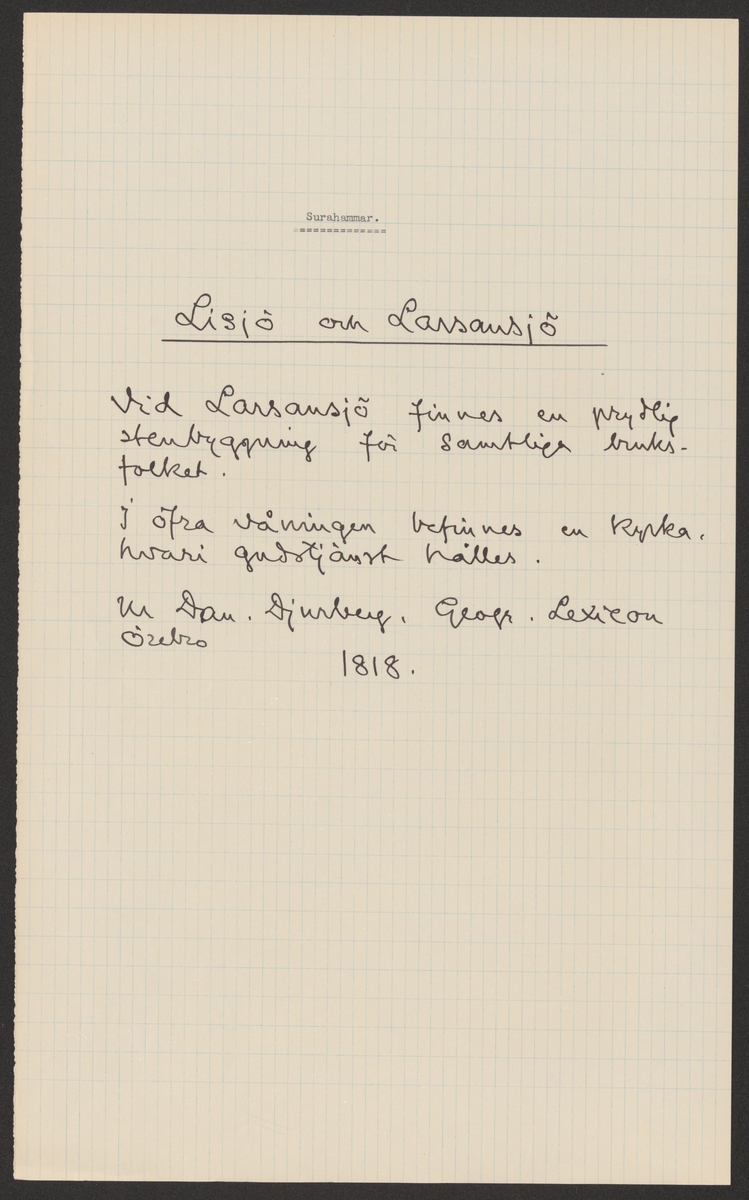 Surahammar.
=============
Lisjö och Larsansjö
Vid Larsansjö finnes en prydlig
stenbyggning för samtliga bruks-
folket.
I öfra våningen befinnes en kyrka,
hvari gudstjänst hålles.
Ur Dan. Djurberg, Geogr. Lexicon
Örebro
1818.